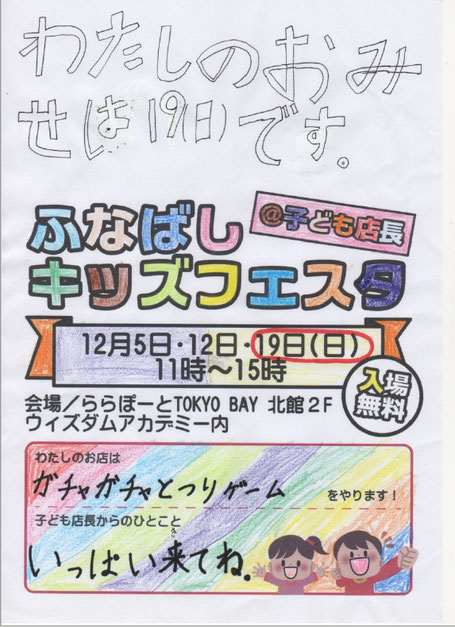 わたしのおみ
せは19日です。
@子ども店長
ふなばし
キッズフェスタ
12月5日・12日・19日(日)
11時～15時
入場
無料
会場／ららぽーとTOKYO BAY 北館２F
ウィズダムアカデミー内
わたしのお店は
ガチャガチャとつりゲーム
をやります！
子ども店長からのひとこと
いっぱい来てね。